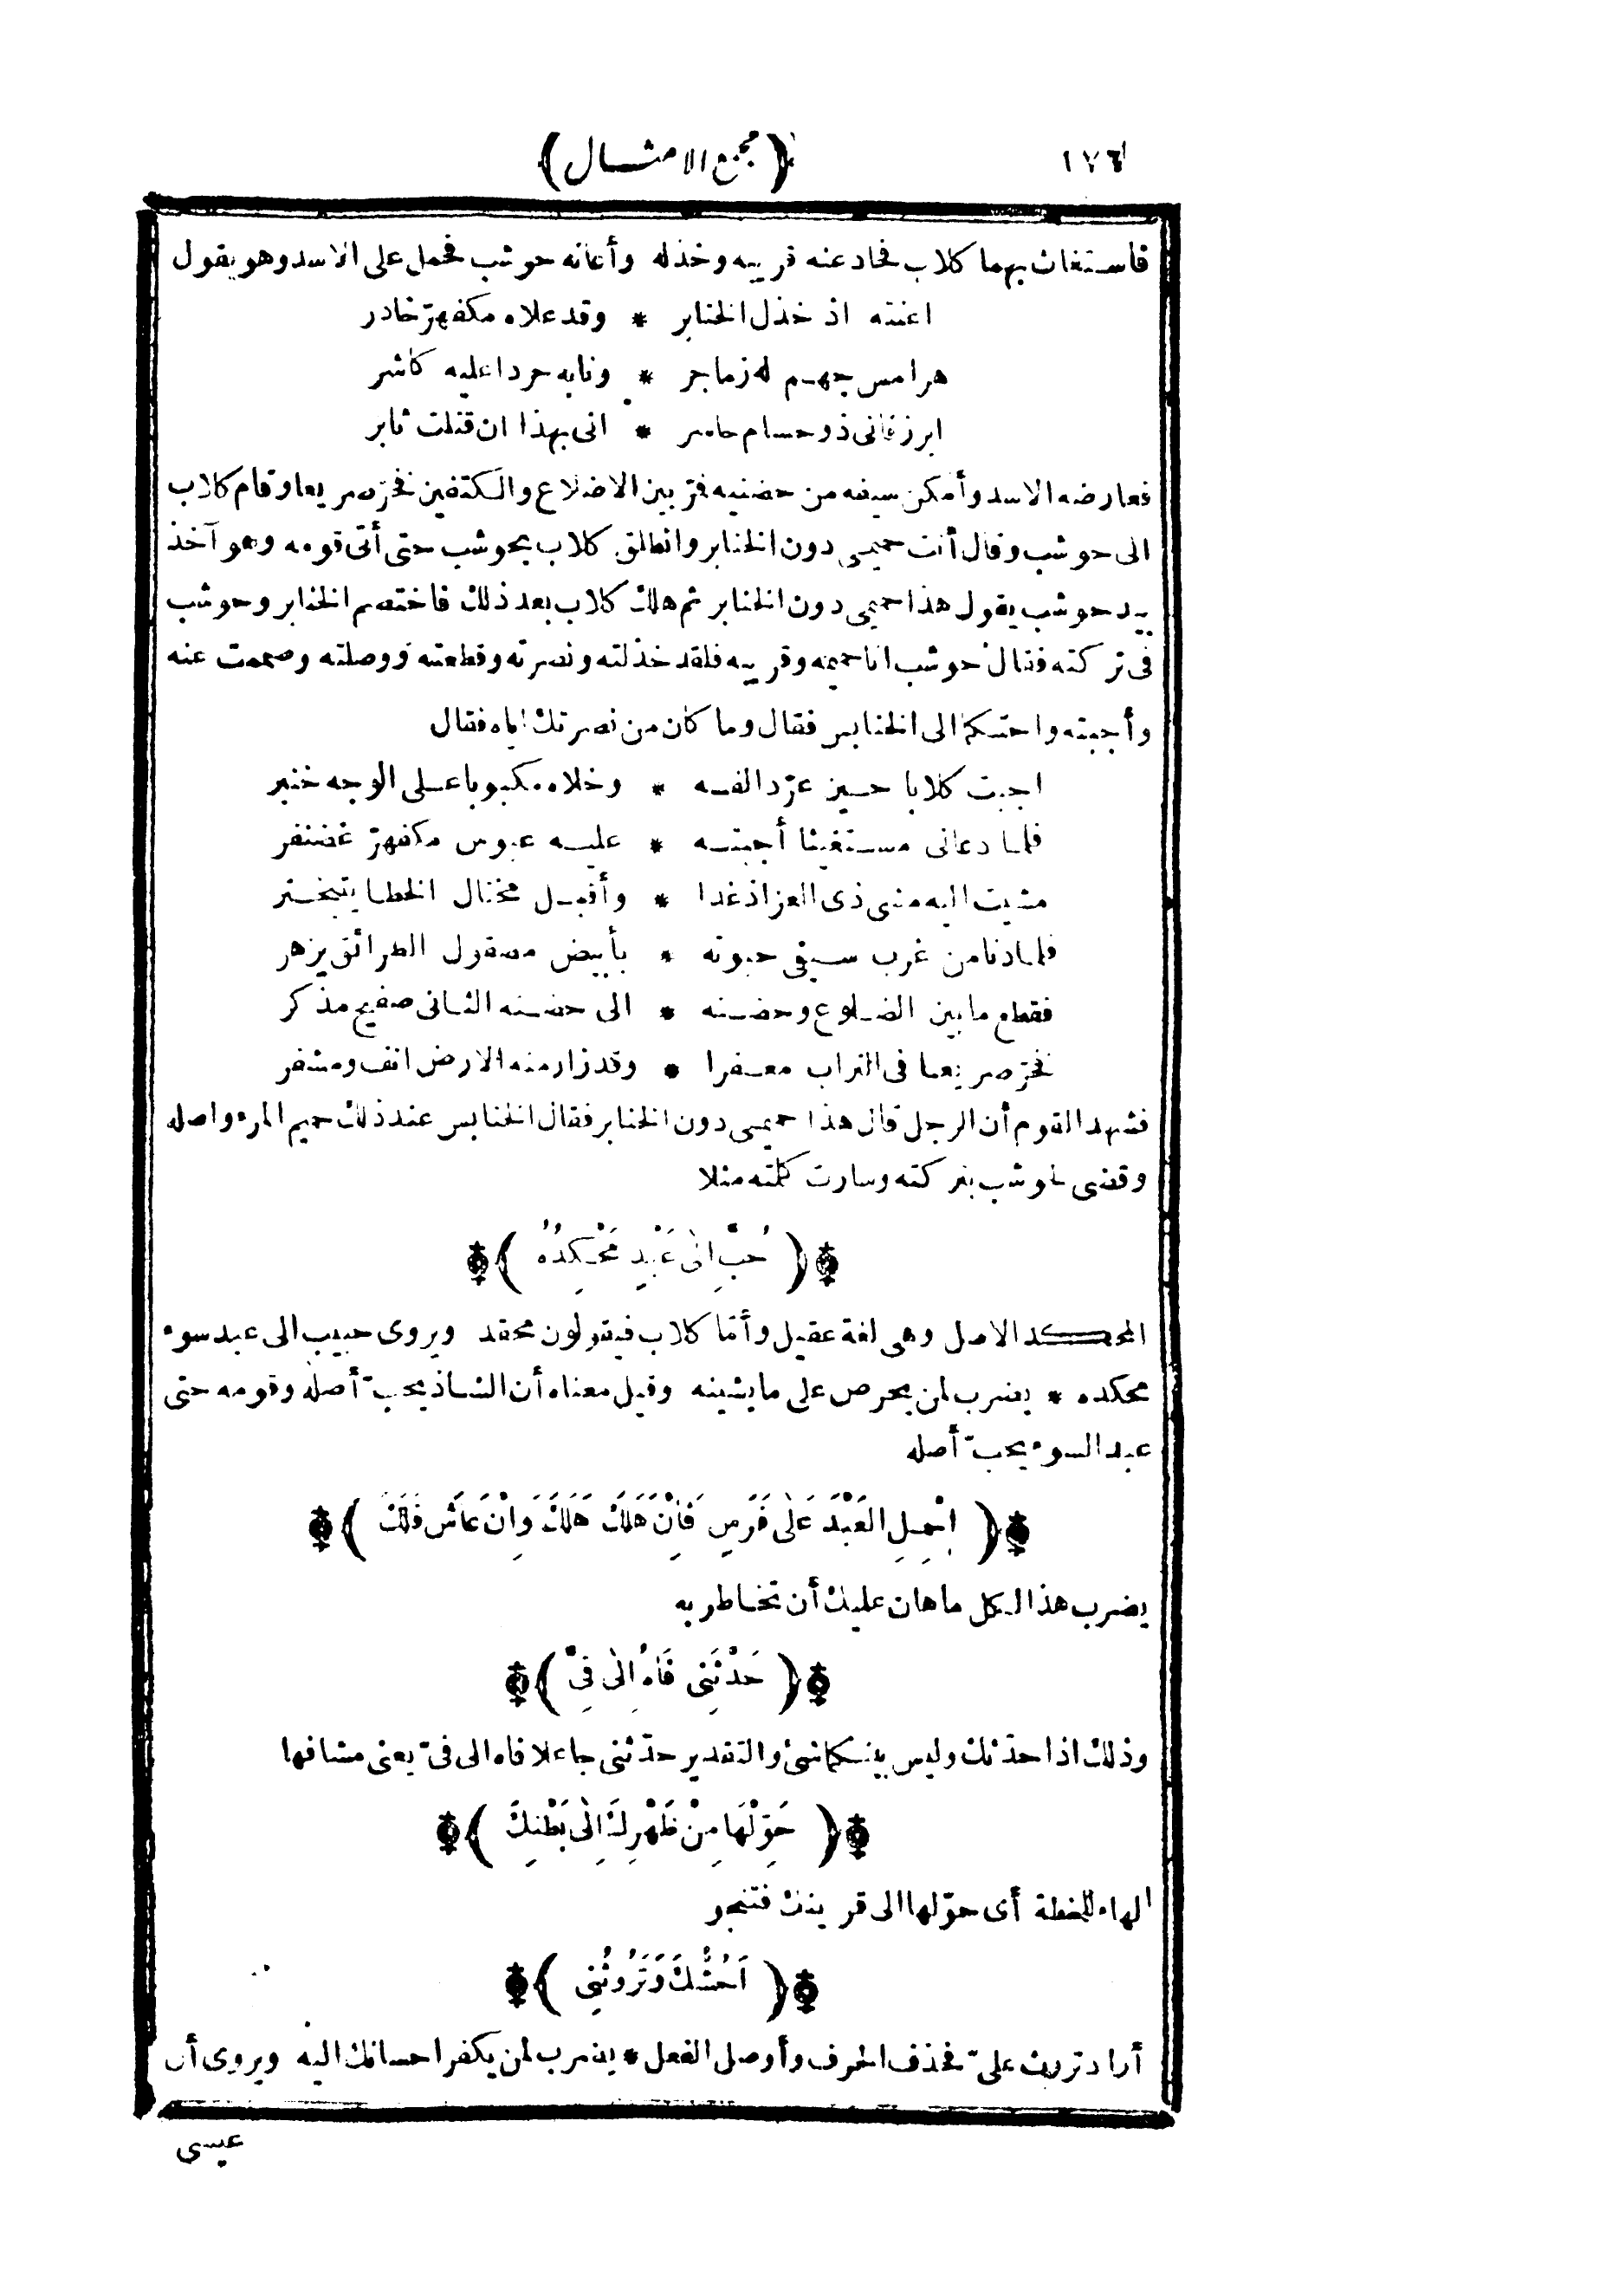 ١٧٦ (مجمع الامثـال)
فاستغاث بهما كلاب فحاد عنه قريبه وخذله وأعانه حوشب فحمل على الاسد وهو يقول
اعنته اذ خذل الخنابر * وقد علاه مكفهرّ خادر
هرامس جهـم له زماجر * ونابه حردا عليه كاشر
ابرز فانى ذو حسام حاسر * انى بهذا ان قتلت ثابر
فعارضه الاسد وأمكن سيفه من حضنيه فمرّ بين الاضلاع والكتفين فخرّ صريعا وقام كلاب
الى حوشب وقال أنت حميمى دون الخنابر وانطلق كلاب بحوشب حتى أتى قومه وهو آخذ
بيد حوشب يقول هذا حميمى دون الخنابر ثم هلك كلاب بعد ذلك فاختصم الخنابر وحوشب
فى تركته فقال حوشب انا حميمه وقريبه فلقد خذلته ونصرته وقطعته ووصلته وصممت عنه
وأجبته واحتكما الى الخنابس فقال وما كان من نصرتك اياه فقال
اجبت كلابا حـين عرّد الفـه * وخلاه مكبوبا عـلى الوجه خنبر
فلما دعانى مسـتغيثا أجبتـه * عليـه عبوس مكفهرّ غضنفر
مشيت اليه مشى ذى العز اذ غدا * وأقبـل مختال الخطـا يتبخـتر
فلمـا دنا من غرب سـيفى حبوته * بأبيض مصقول الطرائق يزهر
فقطع ما بين الضـلوع وحضـنه * الى حضـنه الثـانى صفيح مذكر
فخرّ صريعـا فى التراب معـفرا * وقد زار منه الارض انف ومشفر
فشهد القوم أن الرجل قال هذا حميمى دون الخنابر فقال الخنابس عند ذلك حميم المرء واصله
وقضى لحوشب بتركته وسارت كلمته مثلا
(حُبَّ اِلَى عَبْدٍ مَحْكِدُهُ)
المحـكـد الاصل وهى لغة عقيل وأمّا كلاب فيقولون محقد ويروى حبيب الى عبد سوء
محكده * يضرب لمن يحرص على ما يشينه وقيل معناه أن الشـاذ يحبّ أصله وقومه حتى
عبد السوء يحبّ أصله
(اِحْمِلِ العَبْدَ عَلَى فَرَسٍ فَاِنْ هَلَكَ هَلَكَ وَاِنْ عَاشَ فَلَكَ)
يضرب هذا لـكل ما هان عليك أن تخـاطر به
(حَدَّثَنِى فَاهُ اِلَى فِىَّ)
وذلك اذا حدّثك وليس بينـكما شئ والتقدير حدّثنى جاعلا فاه الى فىّ يعنى مشافها
(حَوِّلْهَا مِنْ ظَهْرِكَ اِلَى بَطْنِكَ)
الهاء للخطة أى حوّلها الى قرينك فتنجو
(اَحُشُّكَ وَتَرُوثُنِى)
أراد تروث علىّ فحذف الحرف وأوصل الفعل * يضرب لمن يكفر احسانك اليه ويروى أن
عيسى